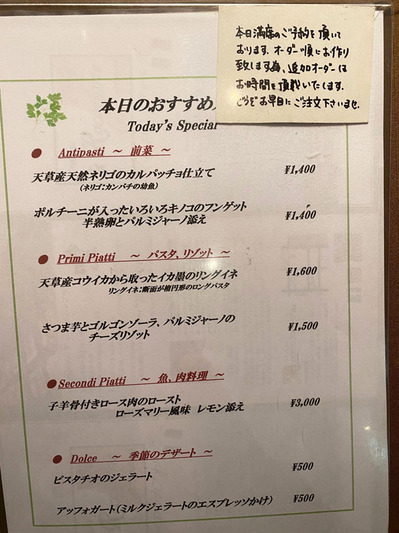 本日満席のご予約を頂いて
おります。オーダー順にお作り
致します為、追加オーダーは
お時間を頂戴いたします。
どうぞお早目にご注文下さいませ。
本日のおすすめ
Today's Special
● Antipasti ～ 前菜 ～
天草産天然ネリゴのカルパッチョ仕立て ¥1,400
(ネリゴ:カンパチの幼魚)
ポルチーニが入ったいろいろキノコのフンゲット
半熟卵とパルミジャーノ添え ¥1,400
● Primi Piatti ～ パスタ、リゾット ～
天草産コウイカから取ったイカ墨のリングイネ ¥1,600
リングイネ:断面が楕円形のロングパスタ
さつま芋とゴルゴンゾーラ、パルミジャーノの ¥1,500
チーズリゾット
● Secondi Piatti ～ 魚、肉料理 ～
子羊骨付きロース肉のロースト ¥3,000
ローズマリー風味 レモン添え
● Dolce ～ 季節のデザート ～
ピスタチオのジェラート ¥500
アッフォガート(ミルクジェラートのエスプレッソかけ) ¥500